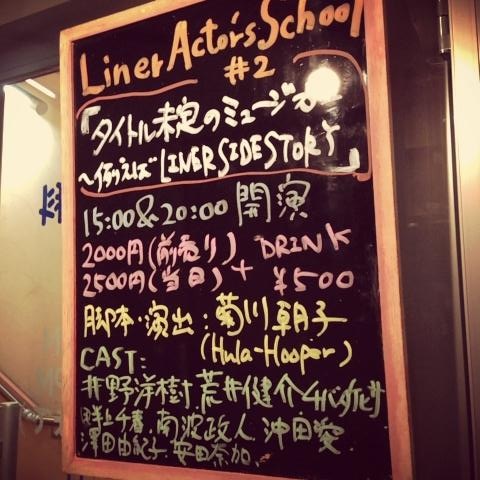 Liner Actor's School
#2
『タイトル未定のミュージカル
〜例えばLINER SIDE STORY』
15:00&20:00 開演
2000円(前売り) + DRINK
2500円(当日) ¥500
脚本・演出:菊川朝子
(Hula-Hooper)
CAST:
井野洋樹 荒井健介
井上千春 南波政人 沖田愛
澤田由紀子 安田奈加